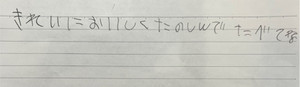 きれいにおいしくたのしんでたべてね